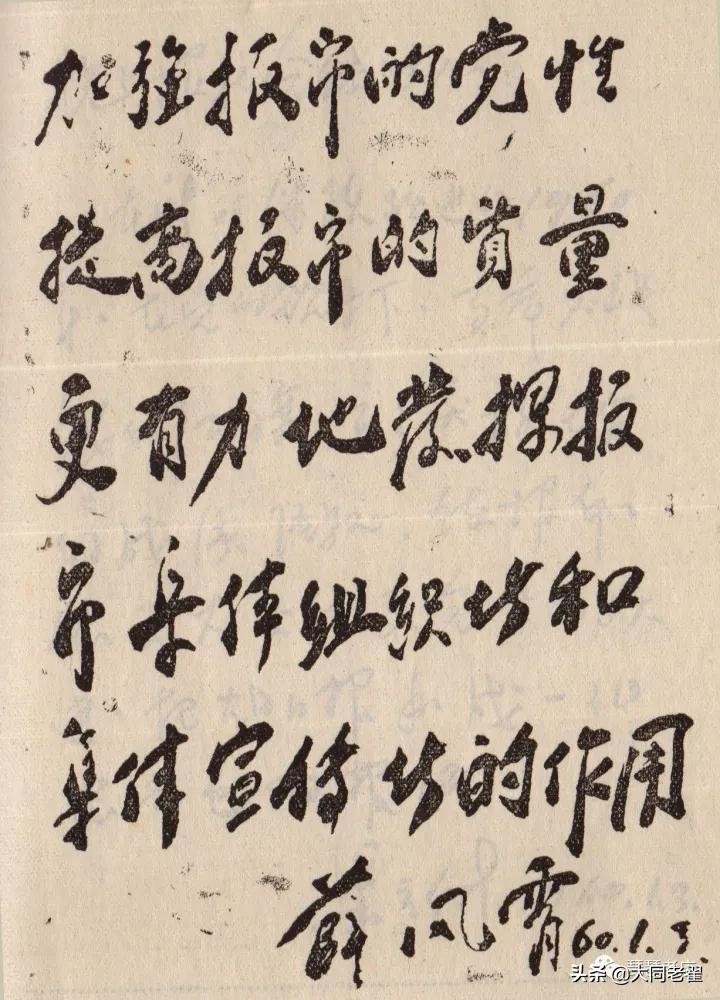 加强报纸的党性
提高报纸的质量
更有力地发挥报
纸集体组织者和
集体宣传者的作用
薛凤霄 60.1.3.
头条 @大同老翟